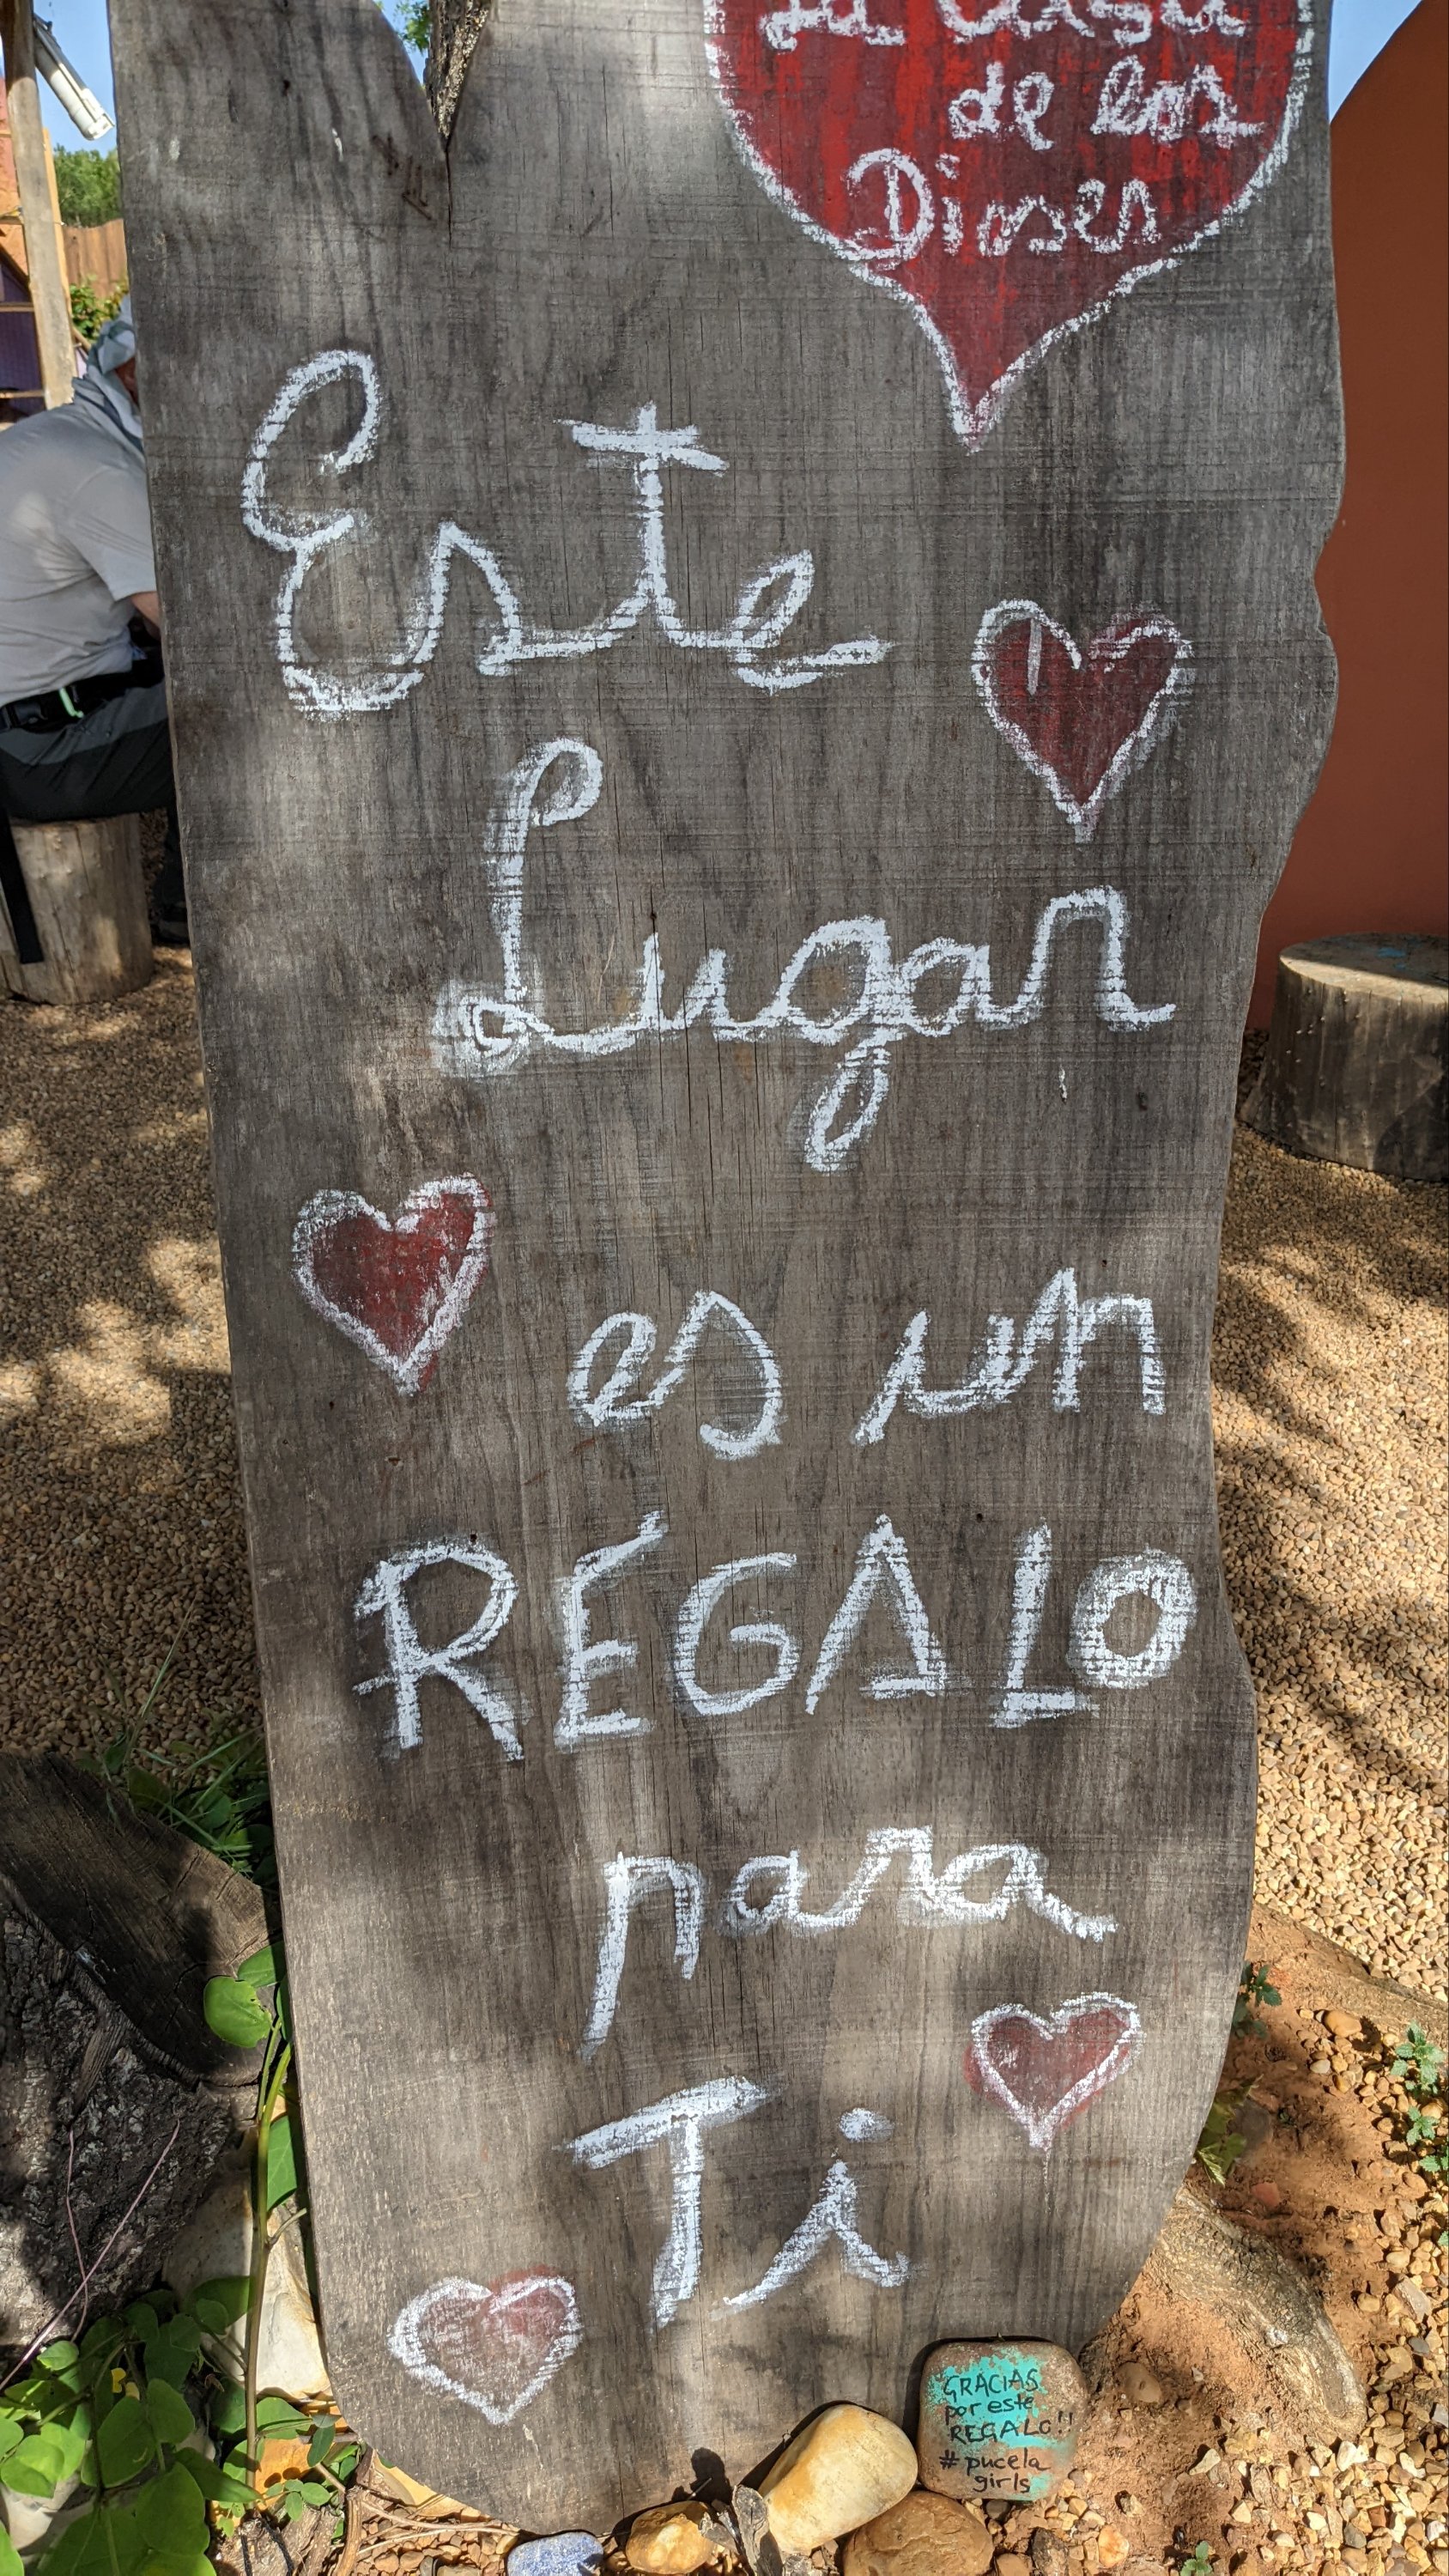 La Casa
de los
Dioses
Este
Lugar
es un
REGALO
para
Ti
GRACIAS
por este
REGALO!!
# pucela
girls